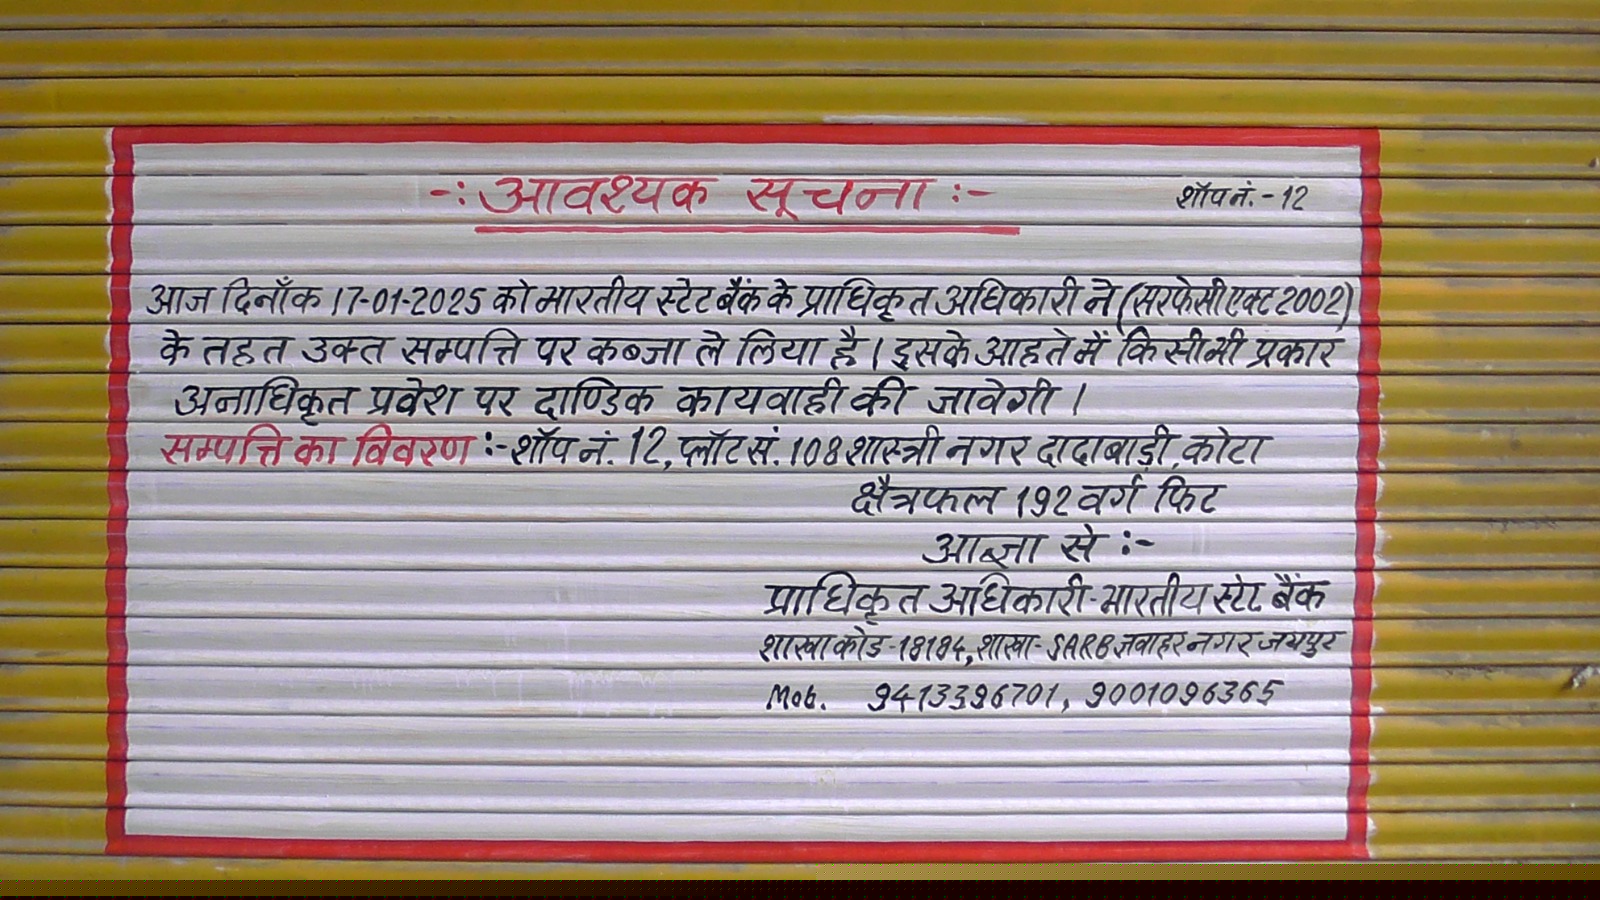 -: आवश्यक सूचना :-
शॉप नं.- 12
आज दिनाँक 17-01-2025 को भारतीय स्टेट बैंक के प्राधिकृत अधिकारी ने (सरफेसी एक्ट 2002)
के तहत उक्त सम्पत्ति पर कब्जा ले लिया है। इसके आहते में किसी भी प्रकार
अनाधिकृत प्रवेश पर दाण्डिक कायवाही की जावेगी ।
सम्पत्ति का विवरण :- शॉप नं. 12, प्लॉट सं. 108 शास्त्री नगर दादाबाड़ी, कोटा
क्षैत्रफल 192 वर्ग फिट
आज्ञा से :-
प्राधिकृत अधिकारी-भारतीय स्टेट बैंक
शाखा कोड-18184, शाखा- SARB जवाहर नगर जयपुर
Mob. 9413396701, 9001096365